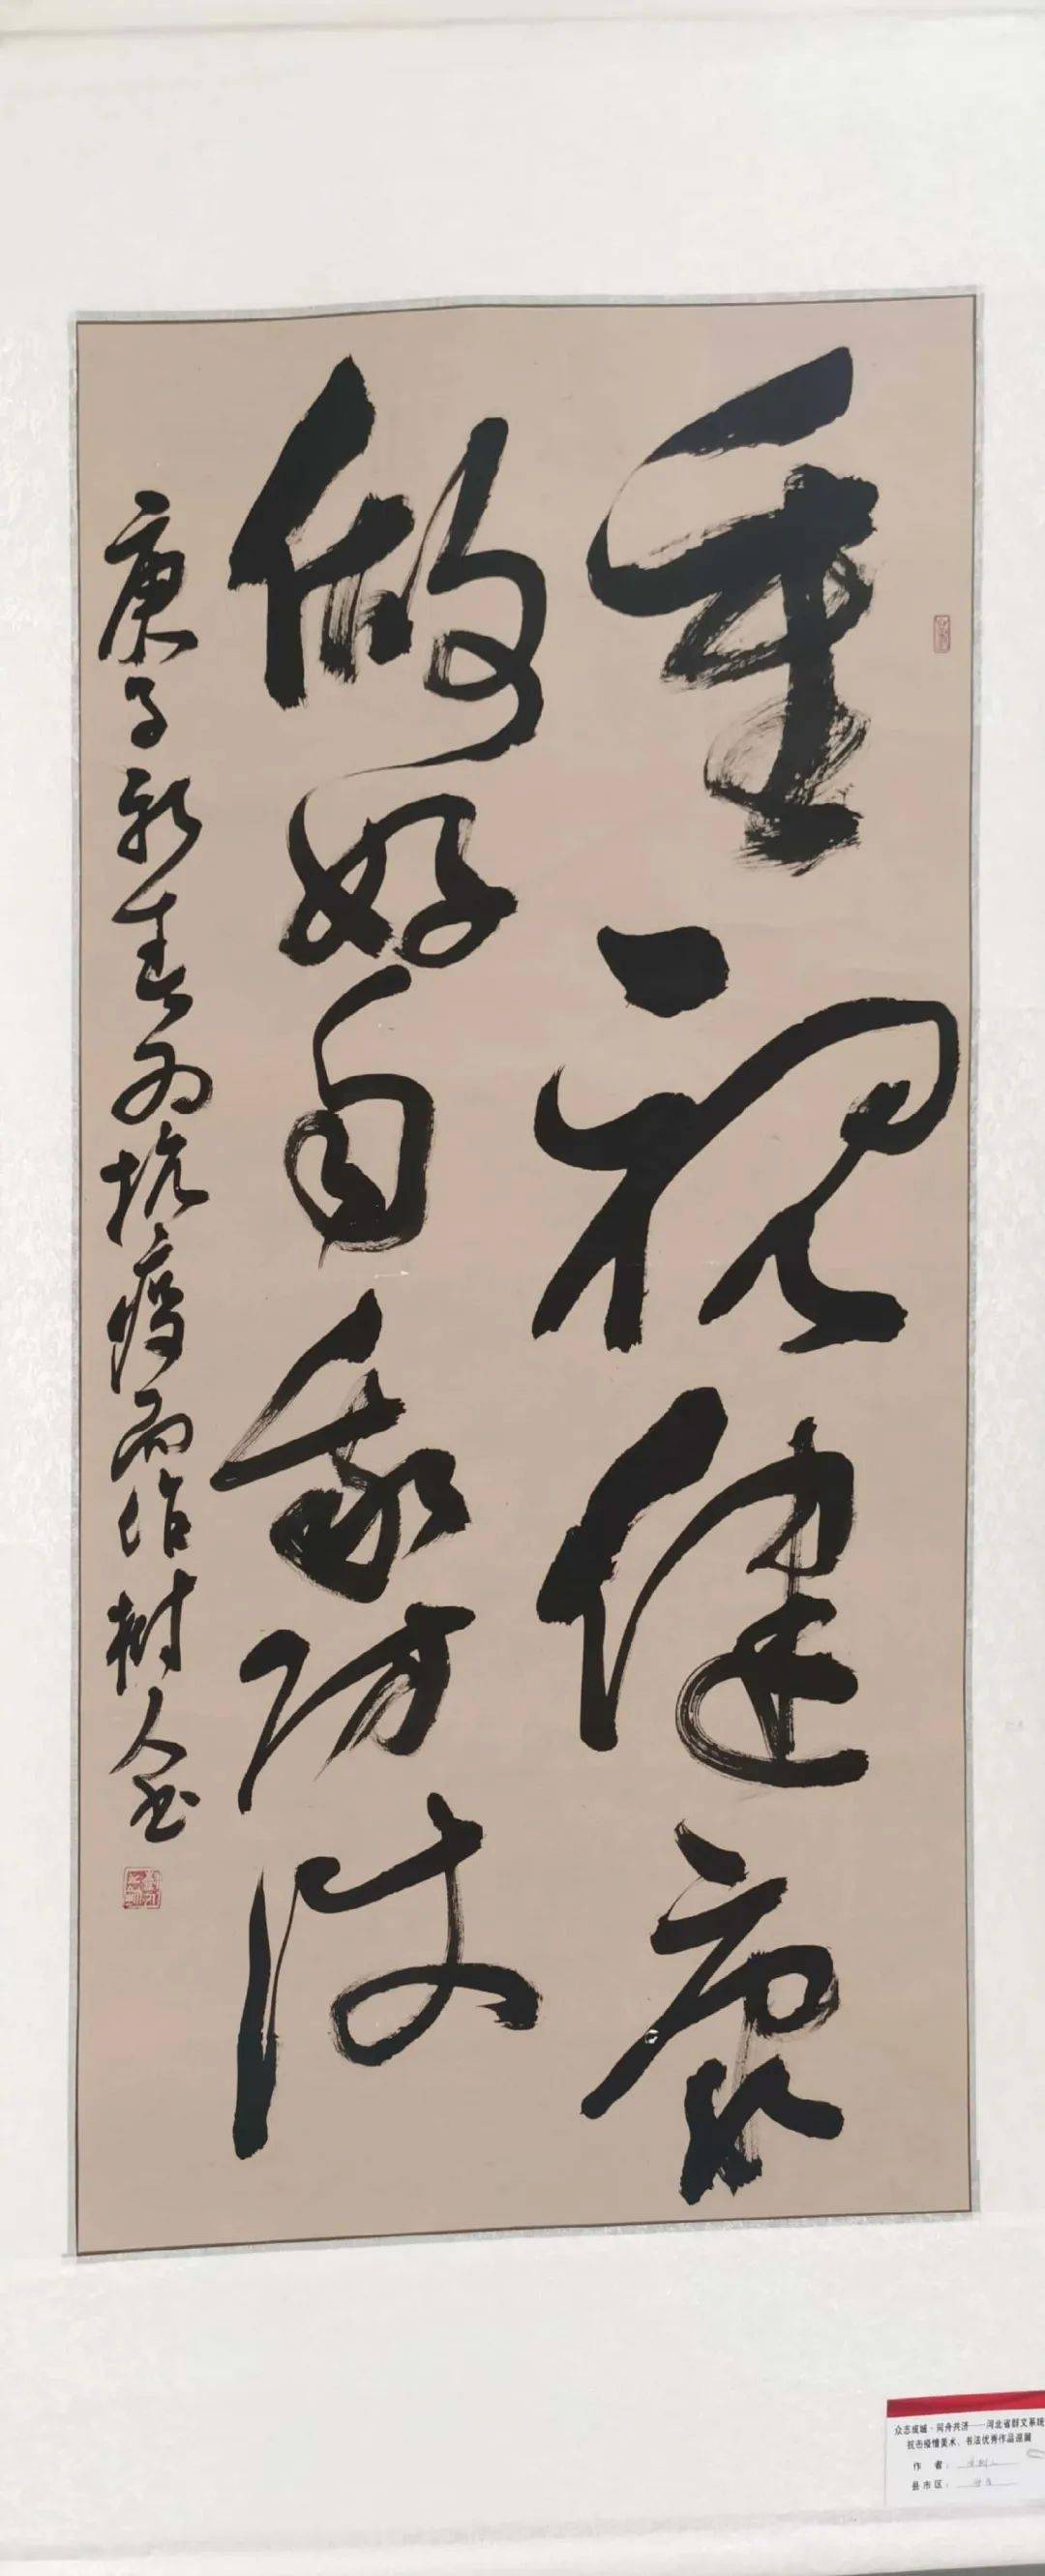 重视健康
做好自我防疫
庚子新春为抗疫而作树人书
众志成城·同舟共济——河北省群文系统
抗击疫情美术、书法优秀作品巡展
作 者：
县市区：